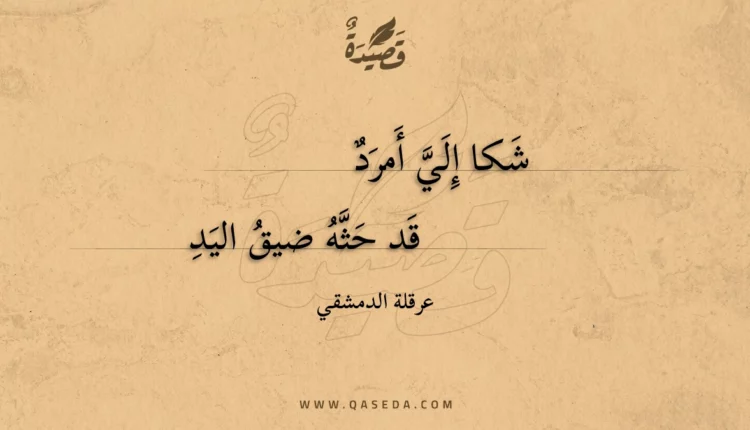 قَصِيْدَةٌ
شَكا إِلَيَّ أَمرَدٌ
قَد حَثَّهُ ضيقُ اليَدِ
عرقلة الدمشقي
WWW.QASEDA.COM